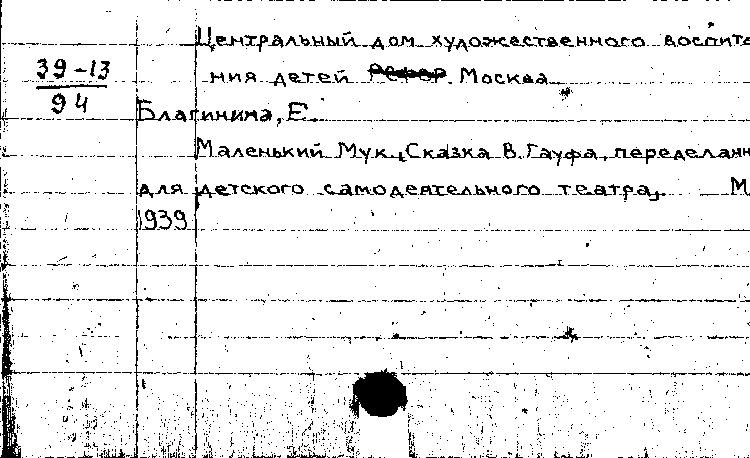 Центральный дом художественного воспита
39-13
ния детей Москва
94
Благинина, Е.
Маленький Мук. Сказка В. Гауфа, переделанн
для детского самодеятельного театра,. М
1939